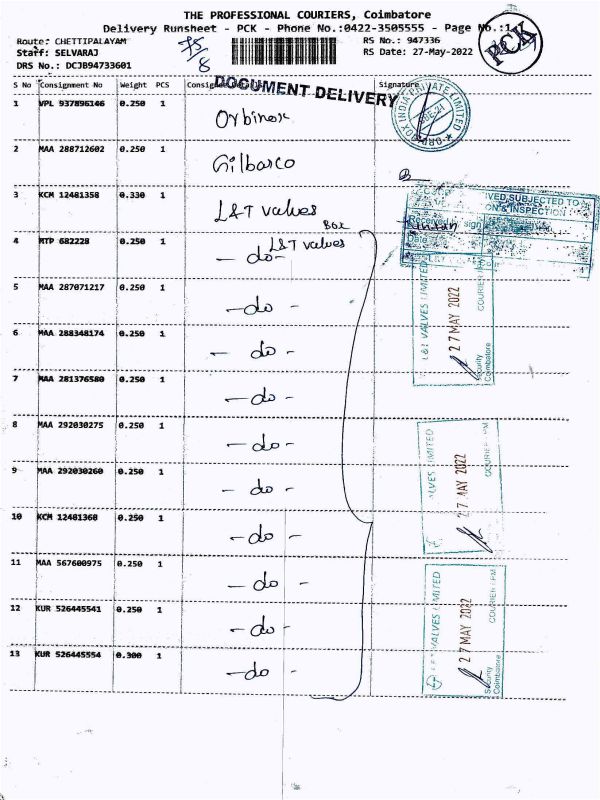 THE PROFESSIONAL COURIERS, Coimbatore
Delivery Runsheet - PCK - Phone No.:0422-3505555 - Page No.:1
Route: CHETTIPALAYAM
Staff: SELVARAJ
DRS No.: DCJB94733601
75
8
RS No.: 947336
RS Date: 27-May-2022
PCK
S No Consignment No Weight PCS Signature
DOCUMENT DELIVERY
1 VPL 937896146 0.250 1 Orbinox
2 MAA 288712602 0.250 1 Gilbarco
3 KCM 12481358 0.330 1 L&T valves
Box
4 MTP 682228 0.250 1 - do - L&T valves
5 MAA 287071217 0.250 1 - do -
6 MAA 288348174 0.250 1 - do -
7 MAA 281376580 0.250 1 - do -
8 MAA 292030275 0.250 1 - do -
9 MAA 292030260 0.250 1 - do -
10 KCM 12481360 0.250 1 - do -
11 MAA 567600975 0.250 1 - do -
12 KUR 526445541 0.250 1 - do -
13 KUR 526445554 0.300 1 - do -
ORBINOX INDIA PRIVATE LIMITED
SUBJECTED TO
INSPECTION
Date
L&T VALVES LIMITED
27 MAY 2022
COURIER
Security
Coimbatore
VALVES LIMITED
27 MAY 2022
COURIER
L&T VALVES LIMITED
27 MAY 2022
COURIER
Security
Coimbatore